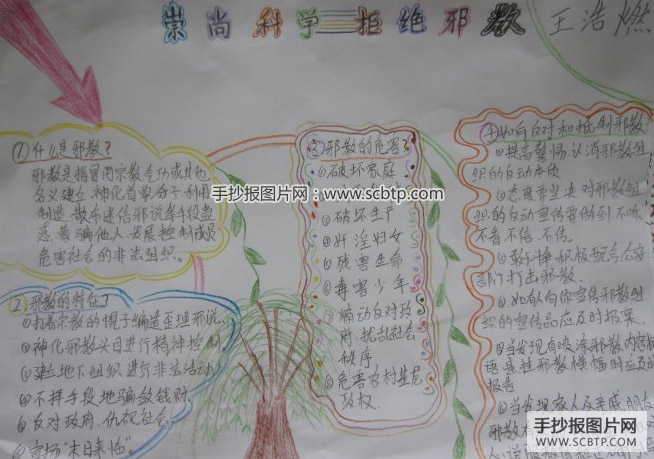 崇尚科学 拒绝邪教
王浩燃
①什么是邪教?
邪教是指冒用宗教、气功或其他
名义建立,神化首要分子,利用
制造、散布迷信邪说等手段蛊
惑、蒙骗他人,发展、控制成员
危害社会的非法组织。
②邪教的特色?
①打着宗教的幌子编造歪理邪说.
②神化邪教头目进行精神控制
③建立地下组织进行非法活动
④不择手段地骗敛钱财.
⑤反对政府、仇视社会
⑥宣扬“末日来临”。
③邪教的危害?
①破坏家庭
破坏生产
奸淫妇女
残害生命
毒害少年
煽动反对政
府,扰乱社会
秩序
危害农村基层
政权.
④如何反对和抵制邪教
提高警惕认清邪教组
织的反动本质
态度要坚决对邪教组
织的反动宣传要做到不听、
不看、不信、不传。
敢于斗争积极配合公安
部门打击邪教.
如有人向你宣传邪教组
织的宣传品应及时报案.
当发现有喷涂邪教内容标
语悬挂邪教横幅时应及时
报告
当发现亲人及亲戚朋友
手抄报图片网:www.scbtp.com
手抄报图片网
WWW.SCBTP.COM